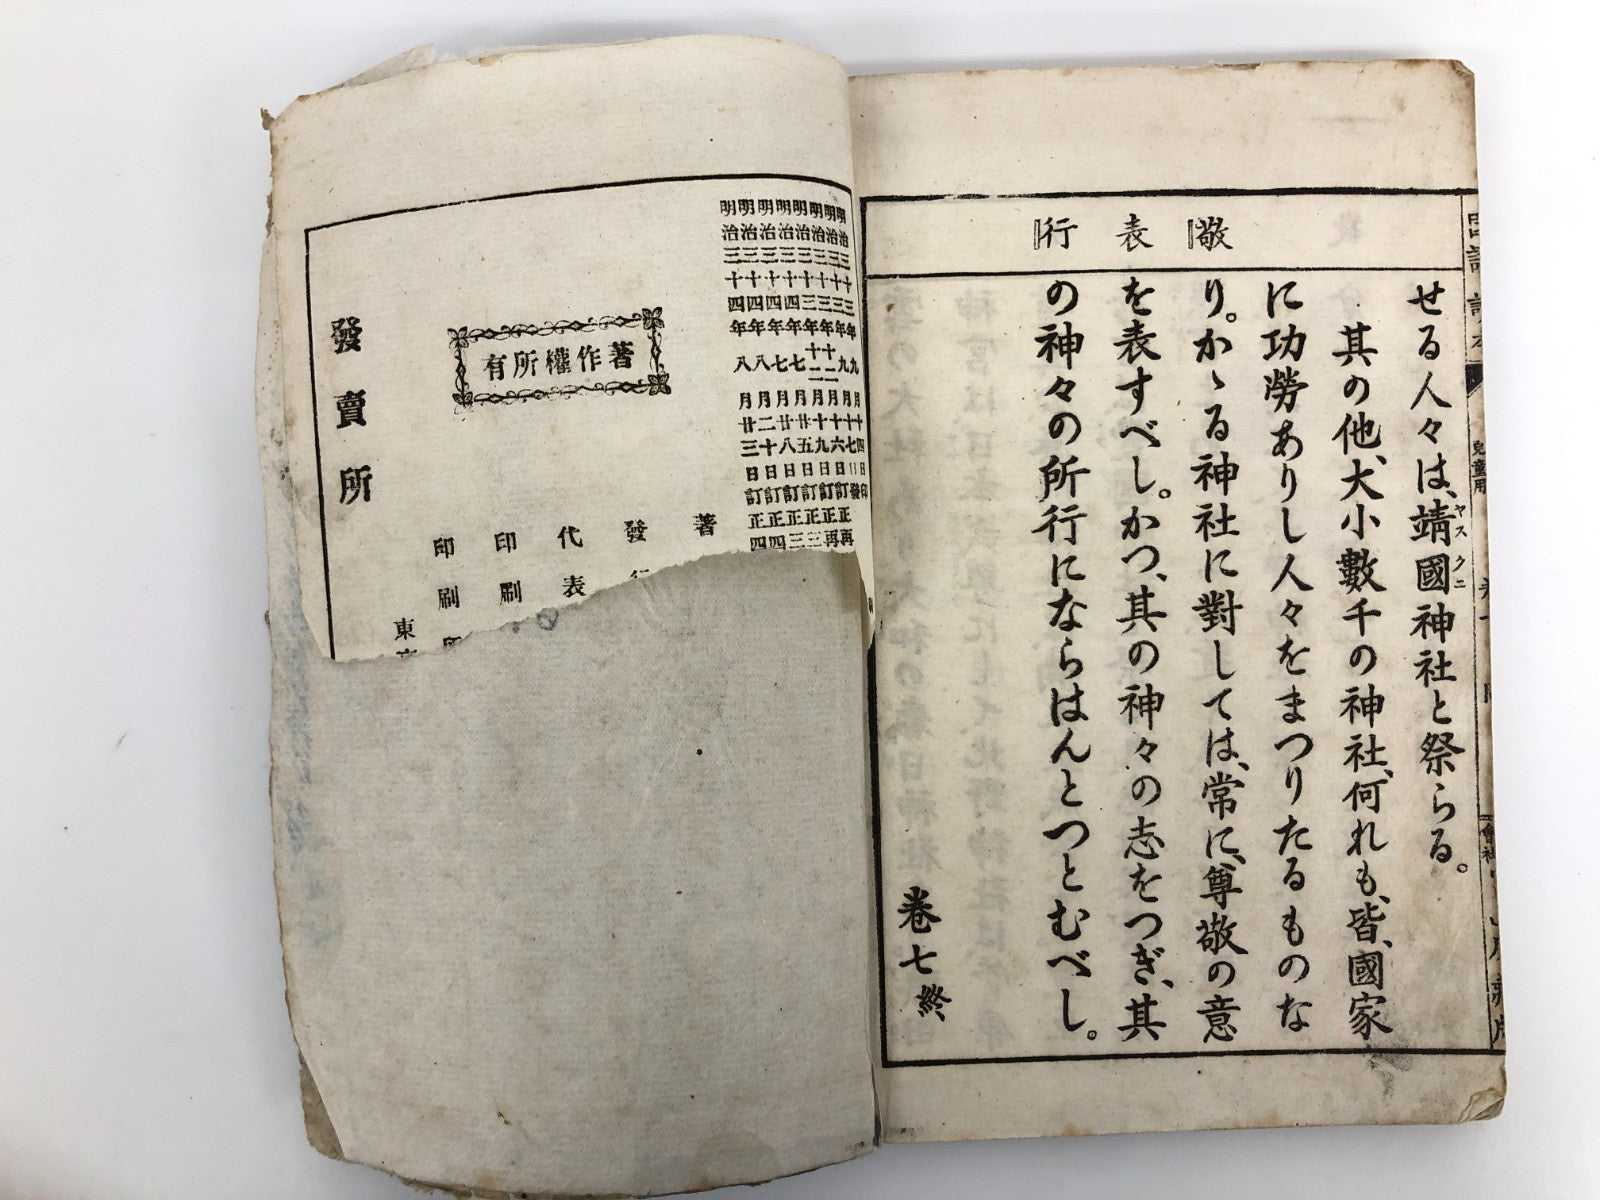 敬
表
行
せる人々は、靖國神社と祭らる。
ヤスクニ
其の他、大小數千の神社、何れも、皆、國家
に功勞ありし人々をまつりたるものな
り。かゝる神社に對しては、常に、尊敬の意
を表すべし。かつ、其の神々の志をつぎ、其
の神々の所行にならはんとつとむべし。
卷七終
兒童用
明治三十三年九月十四日印
明治三十三年九月十七日發
明治三十三年十二月十六日訂正再
明治三十三年十二月十九日訂正再
明治三十四年七月廿五日訂正三
明治三十四年七月廿八日訂正三
明治三十四年八月二十日訂正四
明治三十四年八月廿三日訂正四
著作權所有
著
發
代表
印刷
印刷
東
發賣所